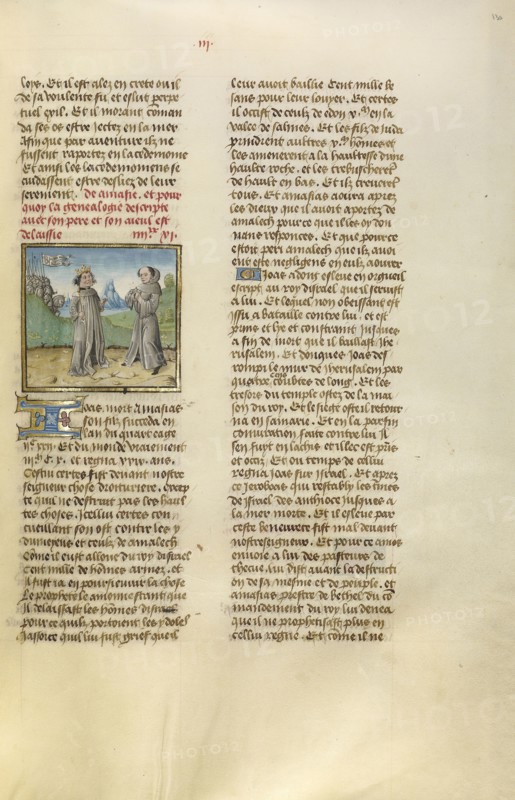 .iii.
loys. Et il est alez en crete ou il
de sa voulente fu et eslut perpe
tuel exil. Et il morant coman
da ses os estre jectez en la mer
Afin que par aventure ilz ne
fussent raportez en lacedemome
Et ainsi les lacedemomens se
cuidassent estre desliez de leur
serement. De amasie. et pour
quoy la genealogie descripte
avec son pere et son aveul est
delaissie
Joas. mort Amasias
son filz succeda en
lan du quart eage
et regna xxix. ans.
Cestui certes fist devant nostre
seigneur chose droicturiere. excep
te quil ne destruit pas les haul
tes choses. Icellui certes con
cueillant son ost contre les y
dumeyens et ceulx de amalech
Come il eust alloue du roy disrael
Cent mille de homes armez. et
il fust ia en poursievant la chose
Le prophete le amonnestant que
Il delaissast les homes disrael
pource quilz portoient les ydoles
Jassoice quil lui fust grief que il
leur avoit baillie Cent mille be
sans pour leur louyer. Et certes
il occist de ceulx de edon en la
valee de salines. Et les filz de iuda
prindrent aultres homes et
les amenerent a la haultesse dune
haulte roche. et les tresbuscherent
de hault en bas. Et ilz creverent
tous. Et amasias aoura apres
les dieux que il avoit aportez de
amalech pource que ilz es don
nans responces. Et que pource
estoit peri amalech que ilz avoi
ent este negligens en eulx aourer
Joas adonc esleve en orgueil
escript au roy disrael que il servist
a lui. Et lequel non obeissant est
issu a bataille contre lui. et est
prins et lye et constraint jusques
a fin de mort que il baillast Ihe
rusalem. Et doncques Joas des
rompi le mur de Iherusalem par
quatre cens coubtes de long. Et les
tresors du temple ostez de la mai
son du roy. Et le siege oste il retour
na en samarie. Et en la parfin
coniuration faite contre lui il
sen fuyt en lachis et illec est prins
et occiz. Et ou temps de cellui
regna Joas sur Israel. Et apres
ce Jeroboas qui restably les termes
de Israel des anthioce jusques a
la mer morte. Et il esleve par
ceste beneurete fist mal devant
nostreseigneur. Et pource amos
envoie a lui des pasteurs de
thecue. lui dist avant la destructi
on de sa mesme et de peuple. et
amasias prestre de bethel du co
mandement du roy lui denea
que il ne prophetisast plus en
cellui regne. Et come il ne
PHOTO12